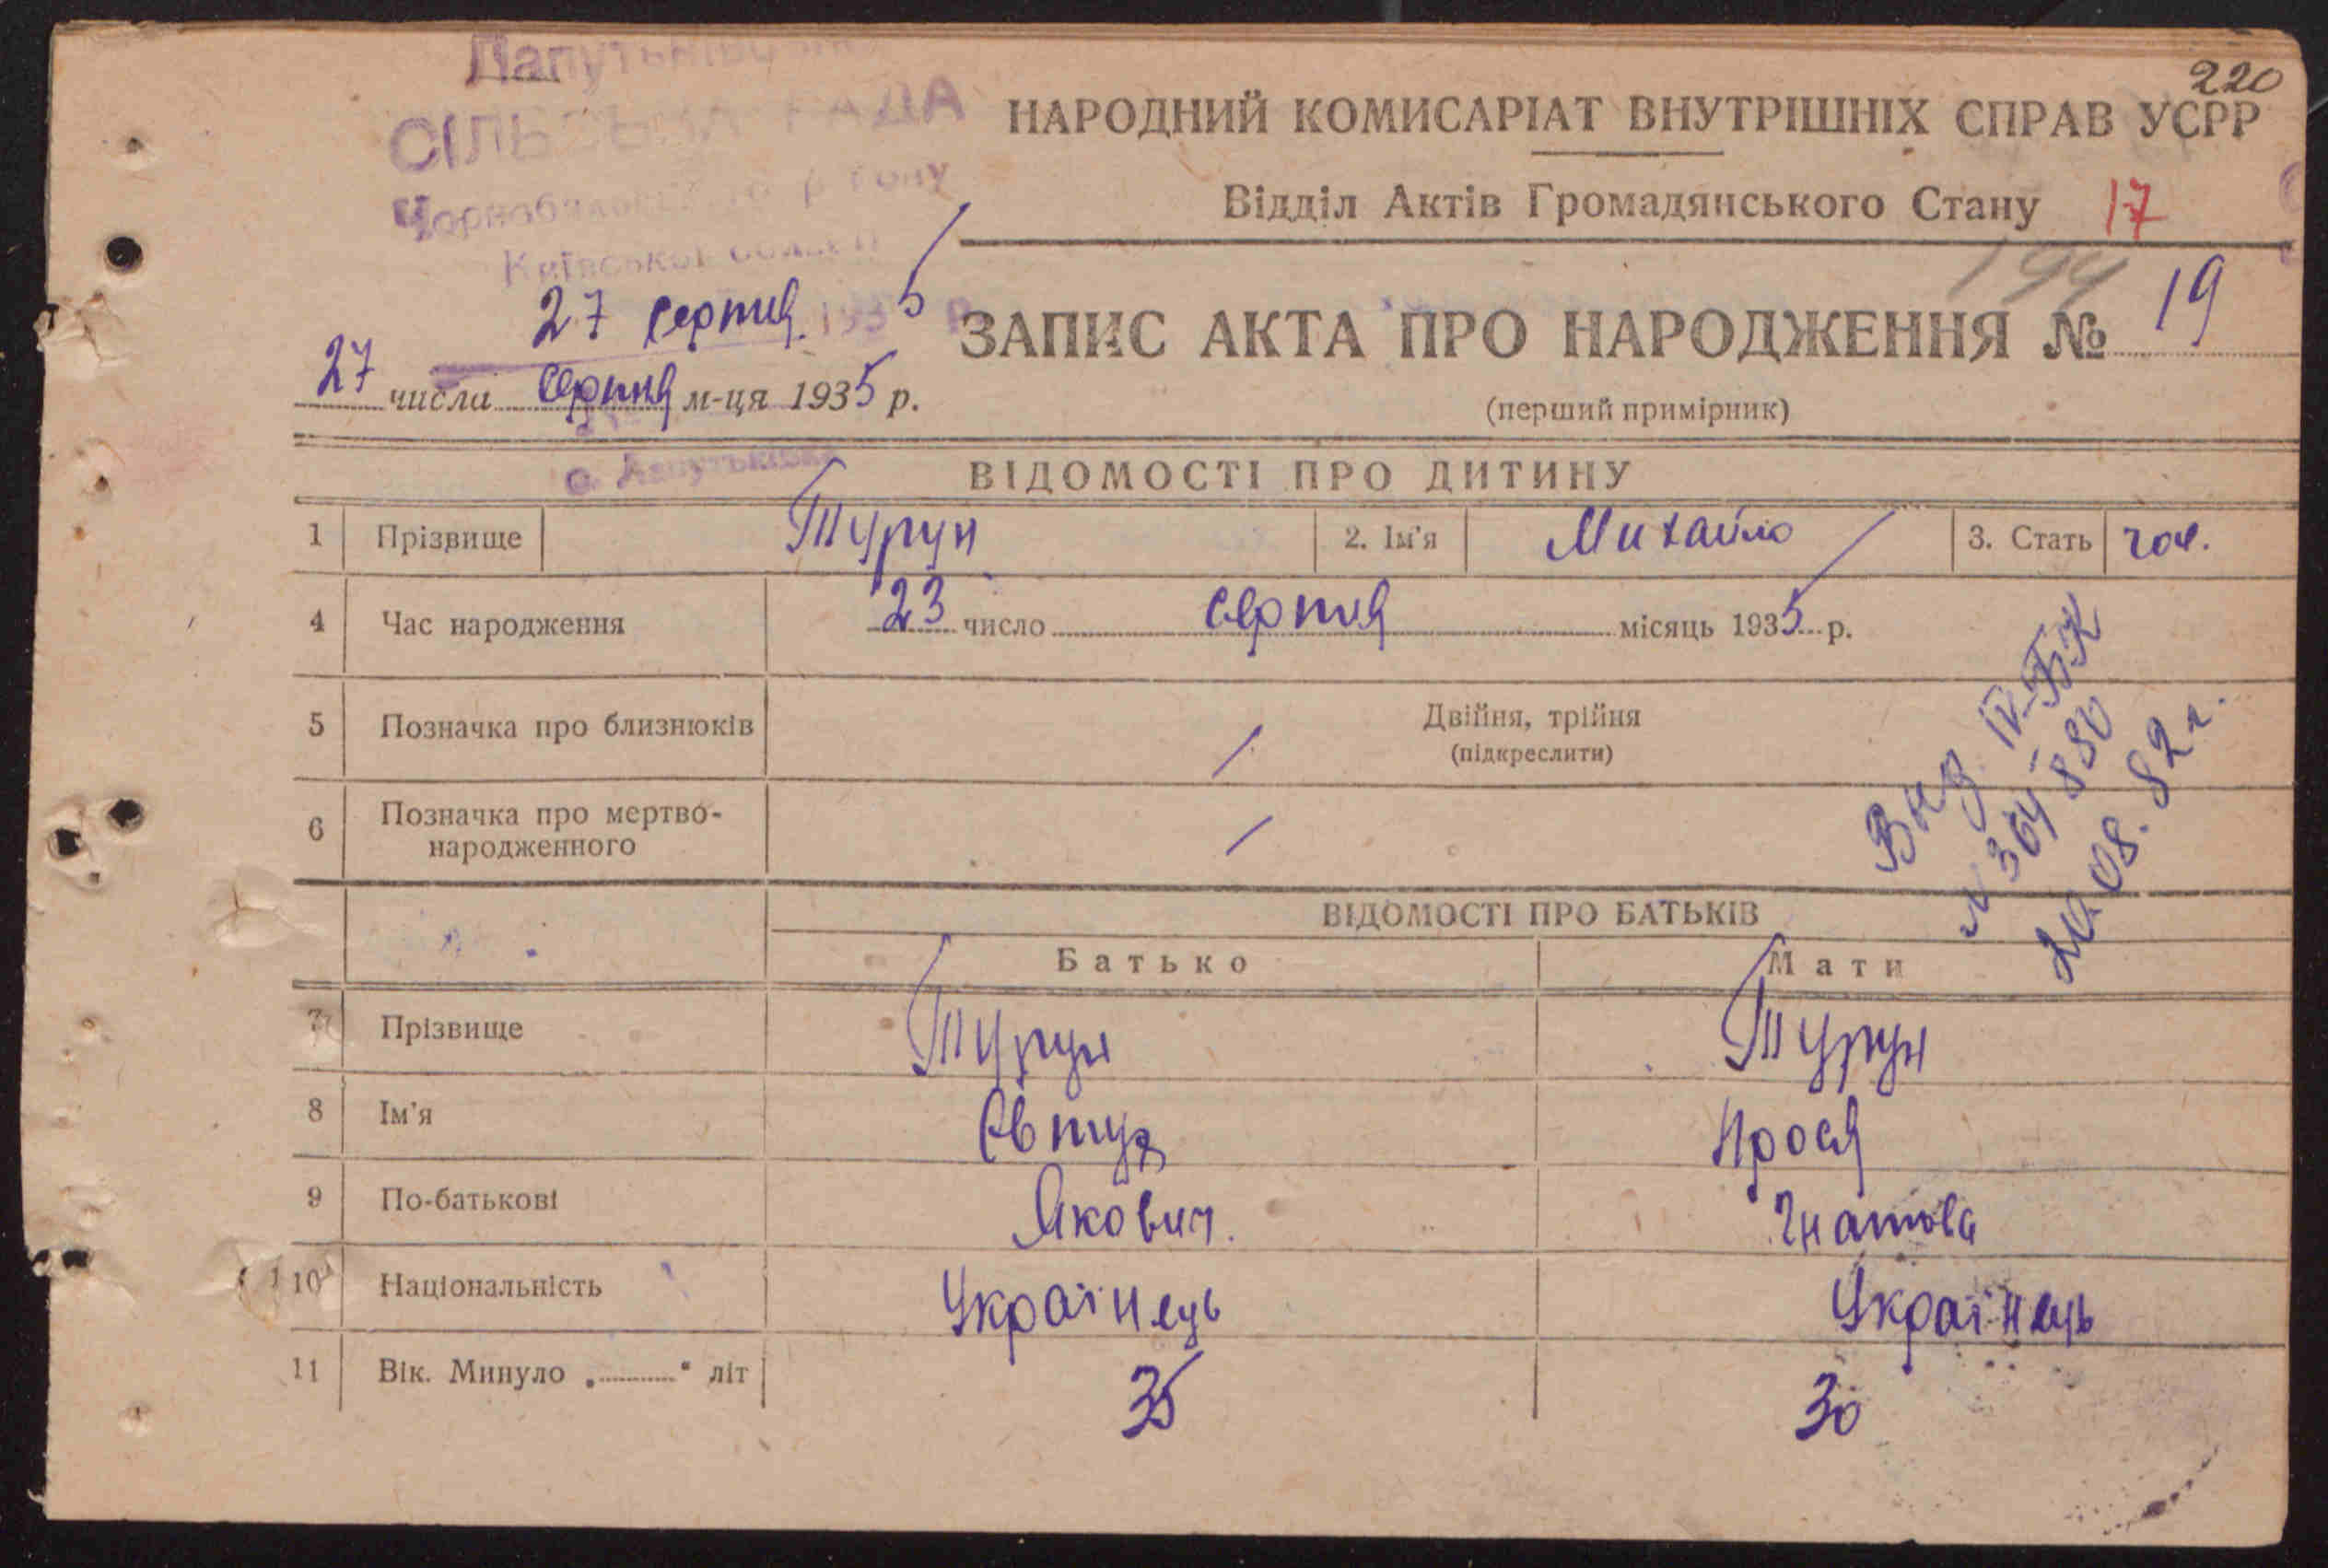 220
СІЛЬСЬКА РАДА
Київської області
НАРОДНИЙ КОМИСАРІАТ ВНУТРІШНІХ СПРАВ УСРР
Відділ Актів Громадянського Стану 17
194
27 серпня 1935 р.
ЗАПИС АКТА ПРО НАРОДЖЕННЯ № 19
27 числа серпня м-ця 1935 р.
(перший примірник)
с. Лапутьківка
ВІДОМОСТІ ПРО ДИТИНУ
1 Прізвище Турун 2. Ім'я Михайло 3. Стать чол.
4 Час народження 23 число серпня місяць 1935 р.
5 Позначка про близнюків / Двійня, трійня
(підкреслити)
6 Позначка про мертво-
народженного /
IV-БК
№ 364880
08.82г.
ВІДОМОСТІ ПРО БАТЬКІВ
Батько Мати
7 Прізвище Турун Турун
8 Ім'я Євтух Прося
9 По-батькові Якович. Гнатова
10 Національність Українець Українець
11 Вік. Минуло „ “ літ 35 30